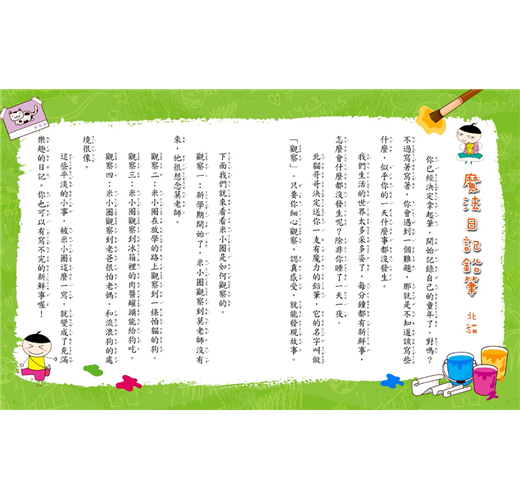 魔法日記鉛筆
北貓
你已經決定拿起筆，開始記錄自己的童年了，對嗎？
不過寫著寫著，你會遇到一個難題，那就是不知道該寫些
什麼，似乎你的一天什麼事都沒發生。
我們生活的世界太多采多姿了，每分鐘都有新鮮事，
怎麼會什麼都沒發生呢？除非你睡了一天一夜。
北貓哥哥決定送你一支有魔力的鉛筆，它的名字叫做
「觀察」。只要你細心觀察，認真感受，就能發現故事。
下面我們就來看看米小圈是如何觀察的。
觀察一：新學期開始了，米小圈觀察到莫老師沒有
來，他很想念莫老師。
觀察二：米小圈在放學的路上觀察到一條怕貓的狗。
觀察三：米小圈觀察到冰箱裡的肉醬罐頭能給狗吃。
觀察四：米小圈觀察到老爸很怕老媽，和流浪狗的處
境很像。
這些平淡的小事，被米小圈這麼一寫，就變成了充滿
樂趣的日記。你也可以有寫不完的新鮮事喔！